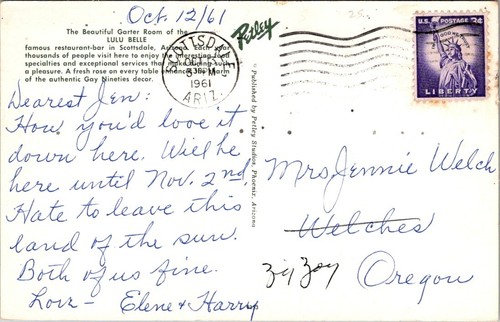 Oct. 12/61
The Beautiful Garter Room of the
LULU BELLE
famous restaurant-bar in Scottsdale, Arizona. Each year
thousands of people visit here to enjoy the interesting food
specialties and exceptional services that make dining such
a pleasure. A fresh rose on every table enhances the charm
of the authentic Gay Nineties decor.
Petley
SCOTTSDALE
OCT
PM
1961
ARIZ.
U.S. POSTAGE 3¢
IN GOD WE TRUST
LIBERTY
Dearest Jen:
How you'd love it
down here. Will be
here until Nov. 2nd.
Hate to leave this
land of the sun.
Both of us fine.
Love - Elene & Harry
Published by Petley Studios, Phoenix, Arizona
Mrs Jennie Welch
Welches
Zig Zag Oregon